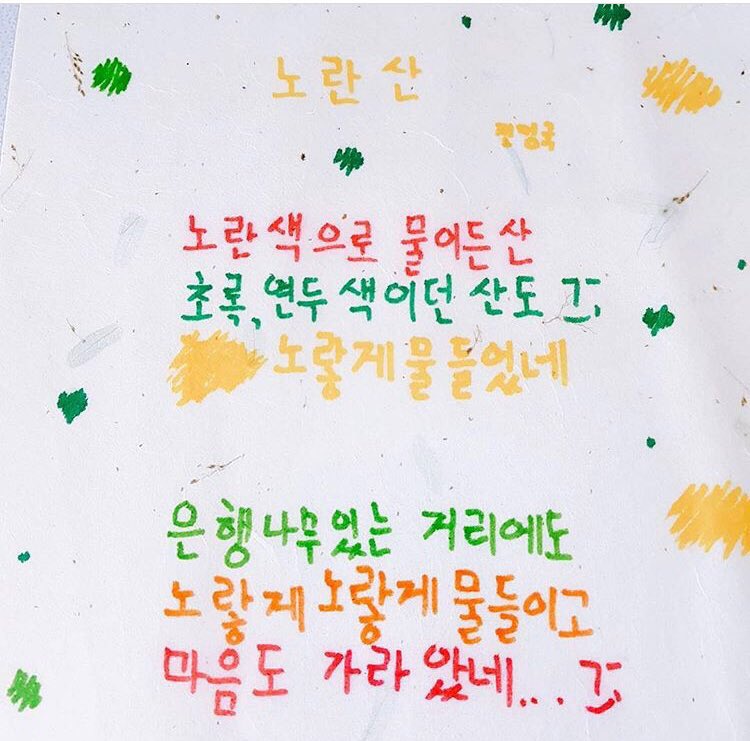 노란 산
노란색으로 물이든산
초록,연두색이던 산도
노랗게물들었네
은행나무있는 거리에도
노랗게 노랗게 물들이고
마음도 가라앉네...